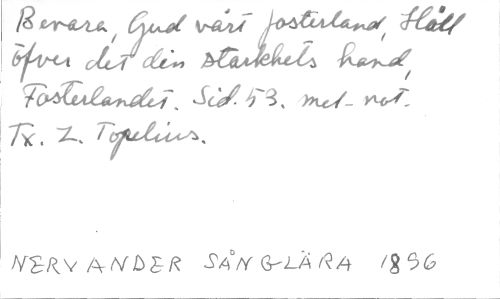 Bevara, Gud vårt fosterland, Håll
öfver det din starkhets hand,
Fosterlandet. Sid. 53. mel-not.
Tx. Z. Topelius.
NERVANDER SÅNGLÄRA 1896